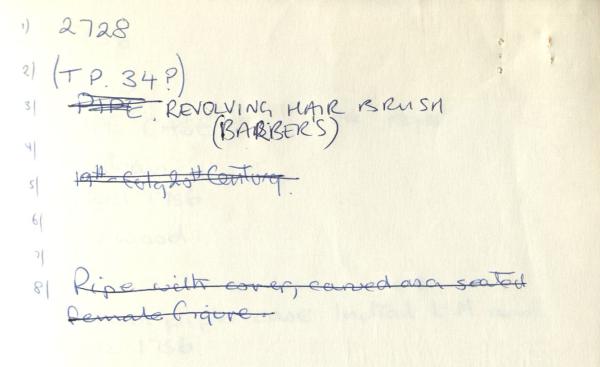 1) 2728
2) (T P. 34?)
3) PIPE. REVOLVING HAIR BRUSH
(BARBERS)
4)
5) 19th Century.
6)
7)
8) Pipe with cover, carved as a seated
female figure.